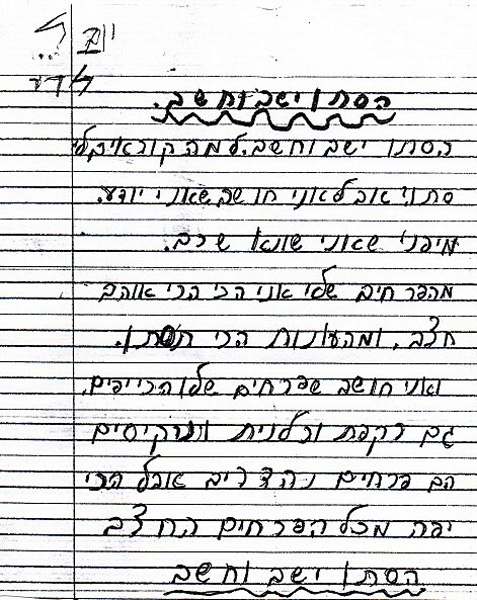 הסתו ישב וחשב.
הסתו ישב וחשב. למה קוראים לי
סתוי אב לאני חושב שאני יודע.
מיפני שאני שונא שרב.
מהפרחים שלי אני הכי הכי אוהב
חצב. ומהעונות הכי תסתו.
ואני חושב שפרחים שלו הכי יפים.
גם רקפת וכלנית ונרקיסים
הם פרחים נהדרים אבל הכי
יפה מכל הפרחים החצב
הסתו ישב וחשב